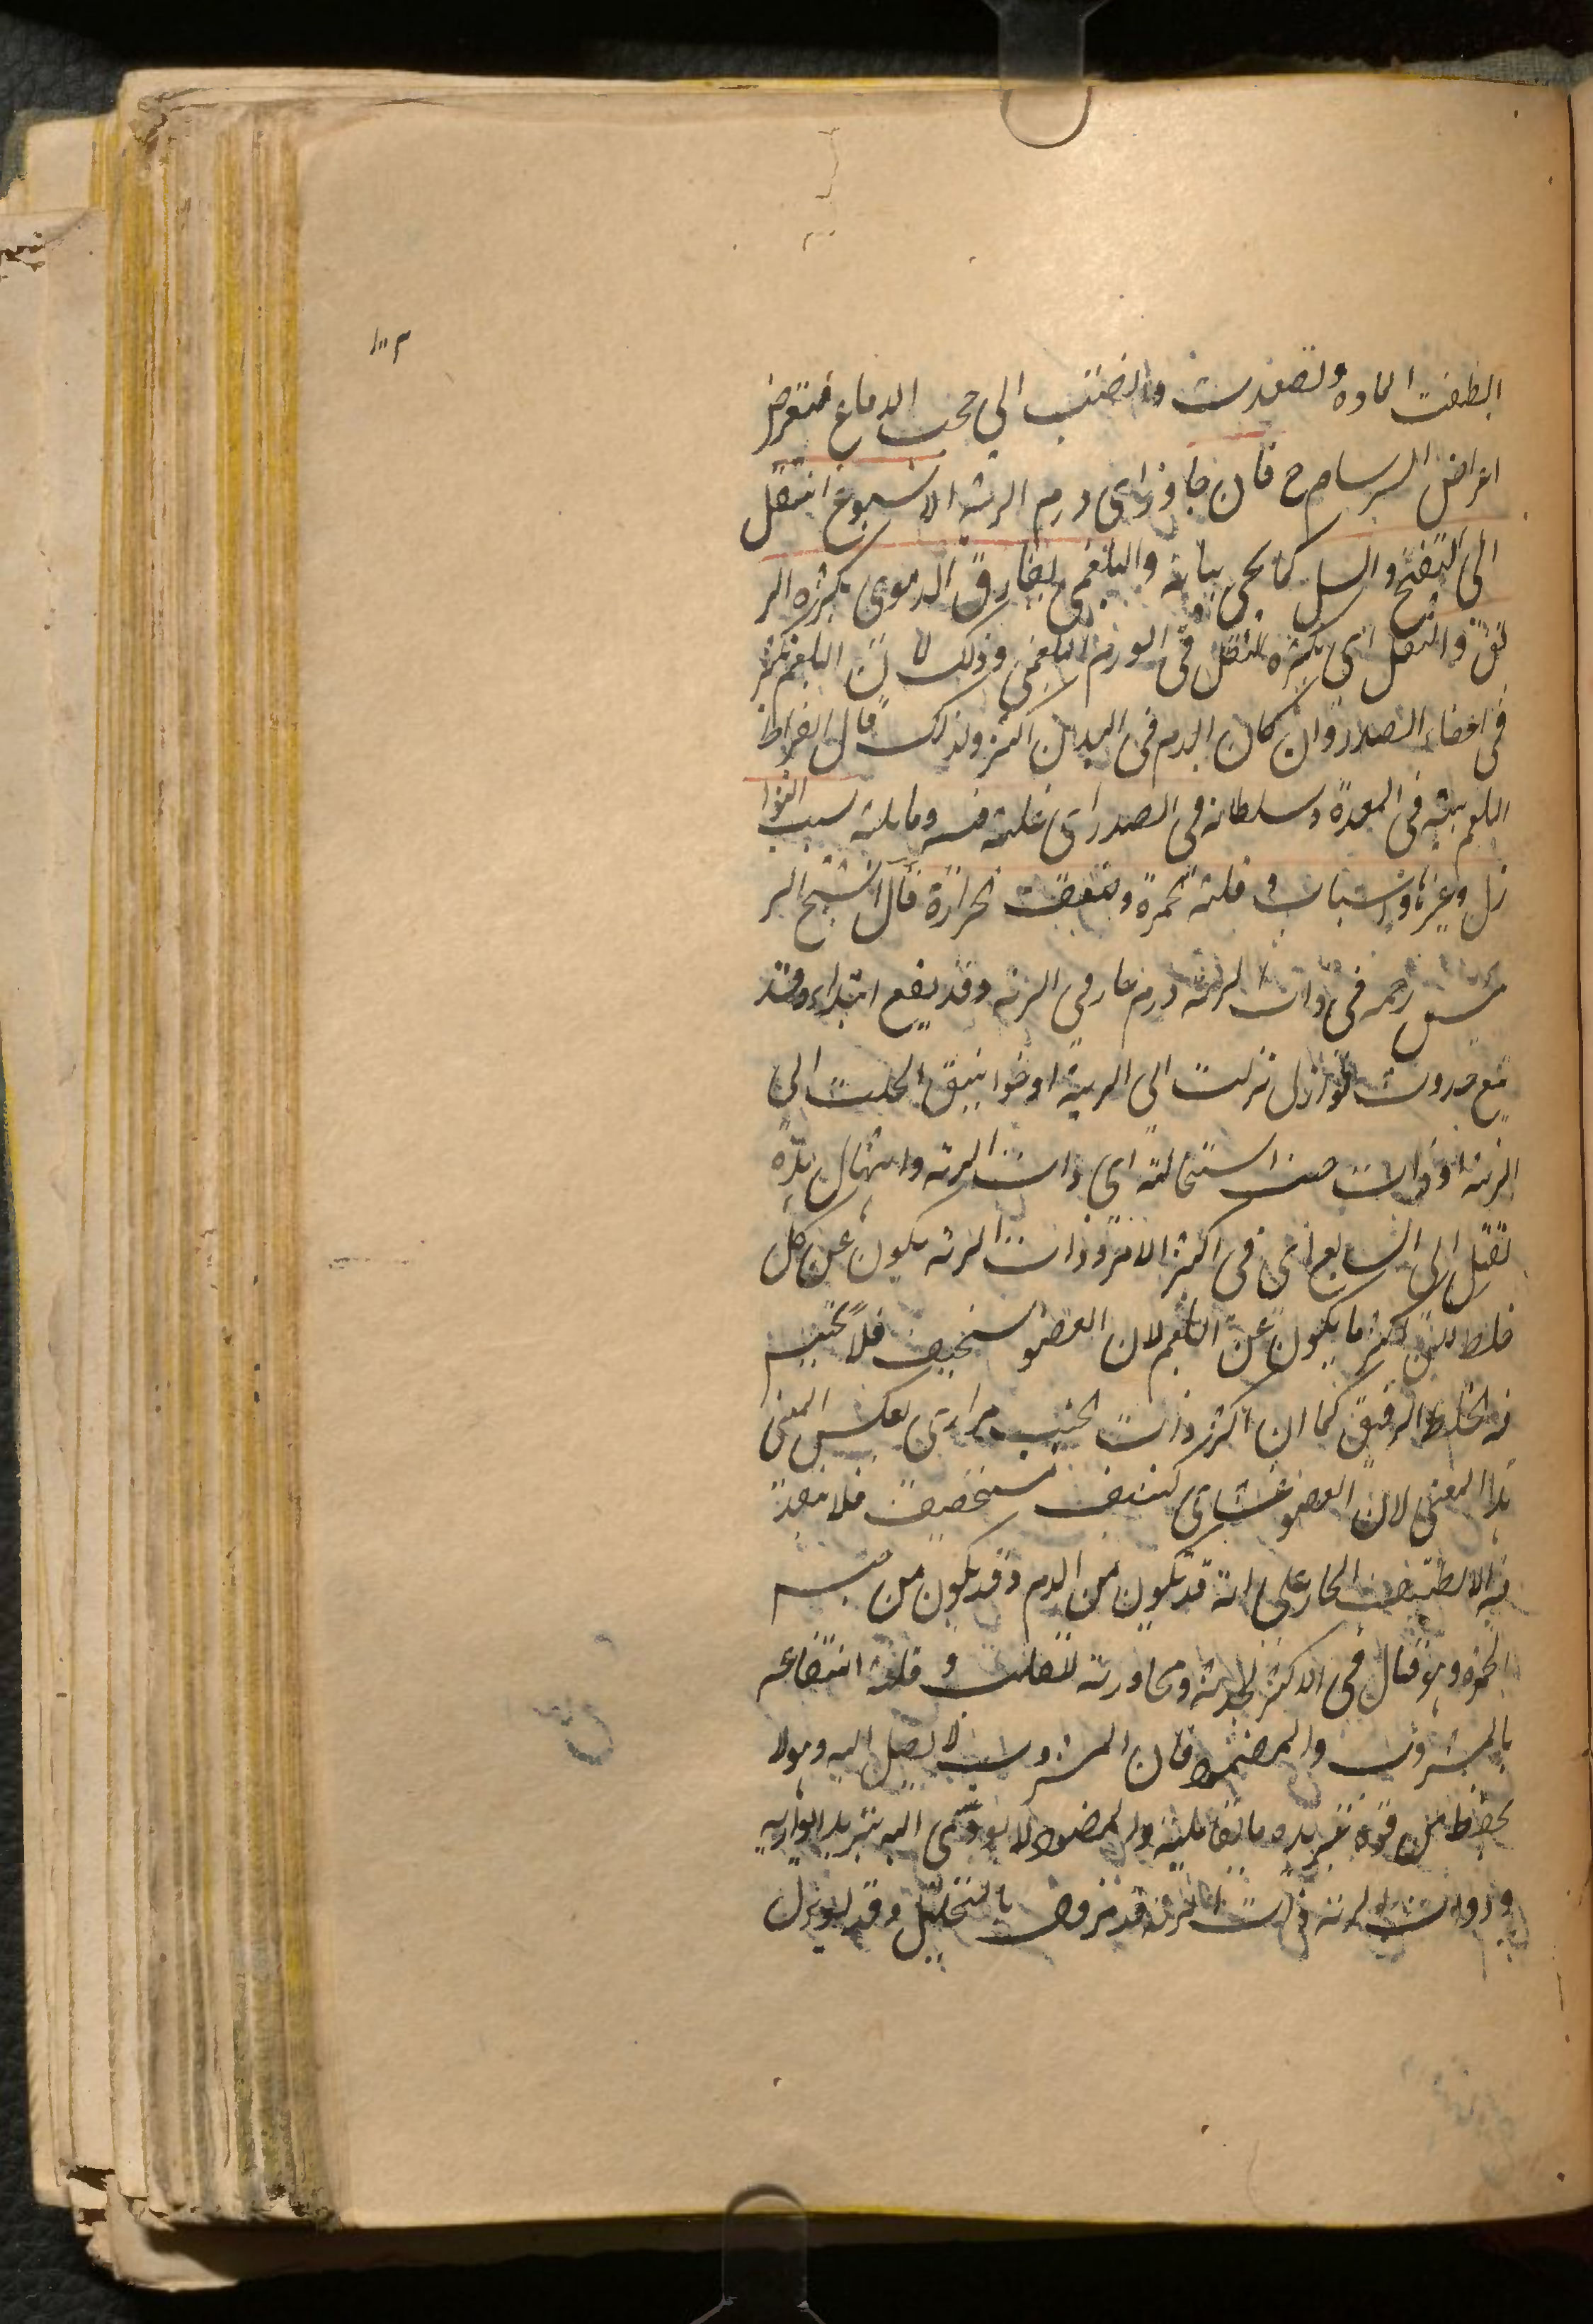 ١٠٣
الطفت الماده وتصعدت وانصبت الى حجب الدماغ فتعرض
اعراض السرسام ح فان جاوز اى ورم الرئه الاسبوع انتقل
الى التقيح والسل كما يجى بيانه والبلغمى يفارق الدموى بكثره الر
يق والثقل اى بكثره الثقل فى الورم البلغمى وذلك لان البلغم يكثر
فى اعضاء الصدر وان كان الدم فى البدن اكثر ولذلك قال ابقراط
البلغم بيته فى المعدة وسلطانه فى الصدر اى غلبته فيه وما يليه سبب النوا
زل وغيرها وا وقلته حمرة وضعف حرارة قال الشيخ الر
ئيس رحمه فى ذات الرئه ورم حار فى الرئه وقد يقع ابتداء وقد
يتبع حدوث نوازل نزلت الى الرية او خوانيق انحلت الى
الرئه او ذات جنب استحالت اى ذات الرئه وامثال هذه
تقتل الى السابع اى فى اكثر الامر وذات الرئه يكون عن كل
خلط لكن اكثر ما يكون عن البلغم لان العضو سخيف فلا يحتبس
فيه الخلط الرقيق كما ان اكثر ذات الجنب مرارى بعكس المعنى
هذا المعنى لان العضو غشاى كثيف مستحصف فلا ينفذ
فيه الا اللطيف الحار على انه قد يكون من الدم وقد يكون من جنس
الحمره وهو قتال فى الاكثر لحدته ومجاورته للقلب و قلة انتفاعه
بالمشروب والمضمود فان المشروب لا يصل اليه وهو لا
يحفظ من قوة تبريده ما يقابله والمضمود لا يودى اليه تبريدا يوازيه
وذوات الرئه ذات الرئه قد تزول بالتحلل وقد يؤول